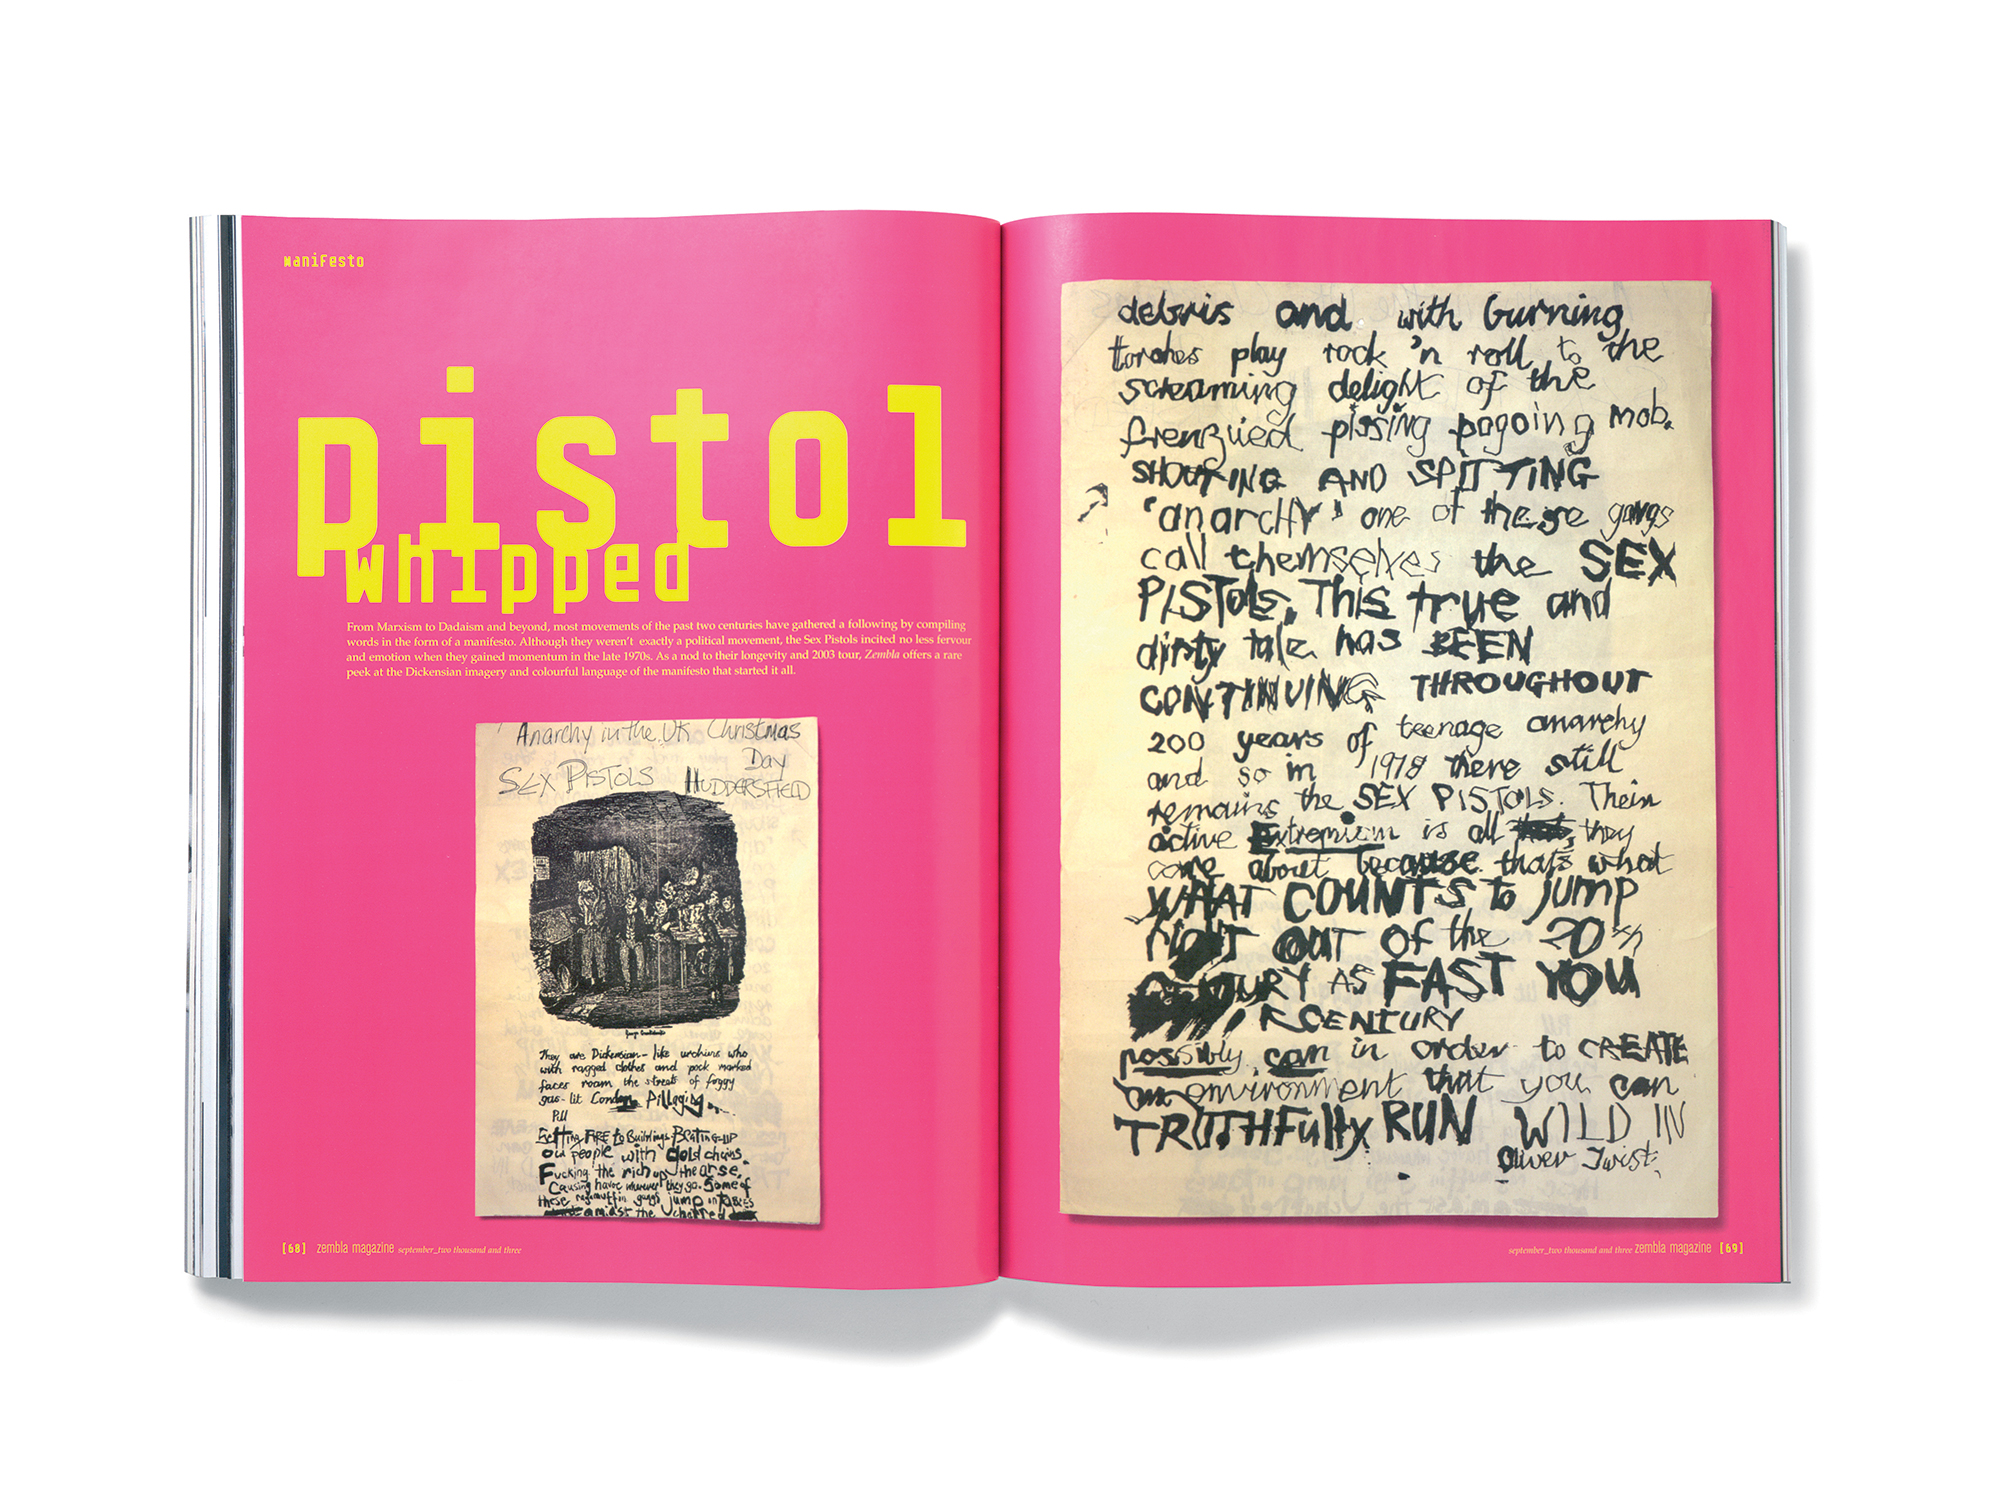 maniFesto
pistol
whipped
From Marxism to Dadaism and beyond, most movements of the past two centuries have gathered a following by compiling
words in the form of a manifesto. Although they weren't exactly a political movement, the Sex Pistols incited no less fervour
and emotion when they gained momentum in the late 1970s. As a nod to their longevity and 2003 tour, Zembla offers a rare
peek at the Dickensian imagery and colourful language of the manifesto that started it all.
Anarchy in the UK Christmas
Day
SEX PISTOLS HUDDERSFIELD
They are Dickensian-like urchins who
with ragged clothes and pock marked
faces roam the streets of foggy
gas-lit London Pillaging...
Pill
SETTing FIRE to Buildings BEATING-UP
old people with Gold chains.
Fucking the rich up the arse.
Causing havoc wherever they go. Some of
these ragamuffin gangs jump on TABLES
amidst the charred
[68] zembla magazine september_two thousand and three
debris and with burning
torches play rock 'n roll to the
screaming delight of the
frenzied pissing pogoing mob.
SHOUTING AND SPITTING
'anarchy' one of these gangs
call themselves the SEX
PISTOLS. This true and
dirty tale has BEEN
CONTINUING THROUGHOUT
200 years of teenage anarchy
and so in 1978 there still
remains the SEX PISTOLS. Their
active Extremism is all they
care about because thats what
WHAT COUNTS to jump
RIGHT OUT of the 20th
CENTURY AS FAST YOU
CENTURY
possibly can in order to CREATE
an environment that you can
TRUTHFully RUN WILD IN
Oliver Twist
september_two thousand and three zembla magazine [69]